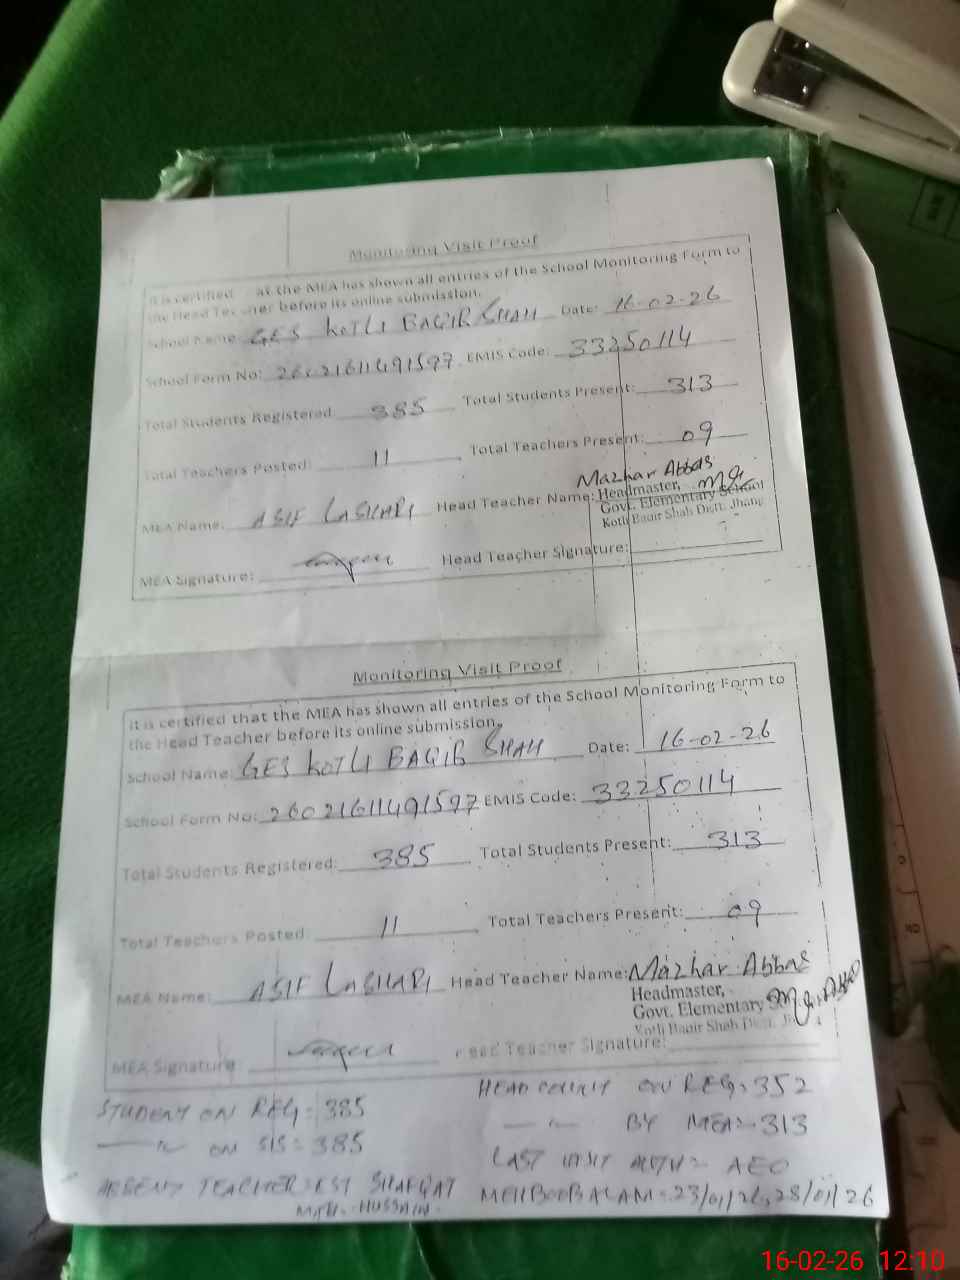 Monitoring Visit Proof
It is certified at the MEA has shown all entries of the School Monitoring Form to
the Head Teacher before its online submission.
School Name: GES KOTLI BAQIR SHAH Date: 16-02-26
School Form No: 26021611491597 EMIS Code: 33250114
Total Students Registered 385 Total Students Present: 313
Total Teachers Posted: 11 Total Teachers Present: 09
Mazhar Abbas
MEA Name: ASIF LASHARI Head Teacher Name: Headmaster,
Govt. Elementary School
Kotli Baqir Shah Distt. Jhang
MEA Signature: Head Teacher Signature:
Monitoring Visit Proof
It is certified that the MEA has shown all entries of the School Monitoring Form to
the Head Teacher before its online submission.
School Name: GES KOTLI BAQIR SHAH Date: 16-02-26
School Form No: 26021611491597 EMIS Code: 33250114
Total Students Registered: 385 Total Students Present: 313
Total Teachers Posted: 11 Total Teachers Present: 09
MEA Name: ASIF LASHARI Head Teacher Name: Mazhar Abbas
Headmaster,
Govt. Elementary
Kotli Baqir Shah Distt.
MEA Signature: Head Teacher Signature:
STUDENT ON REG= 385 HEAD COUNT ON REG= 352
ON SIS= 385 BY MEA= 313
LAST VISIT AEO
ABSENT TEACHER: EST SHAFQAT MEHBOOB ALAM= 23/01/26, 28/01/26
HUSSAIN
16-02-26 12:10